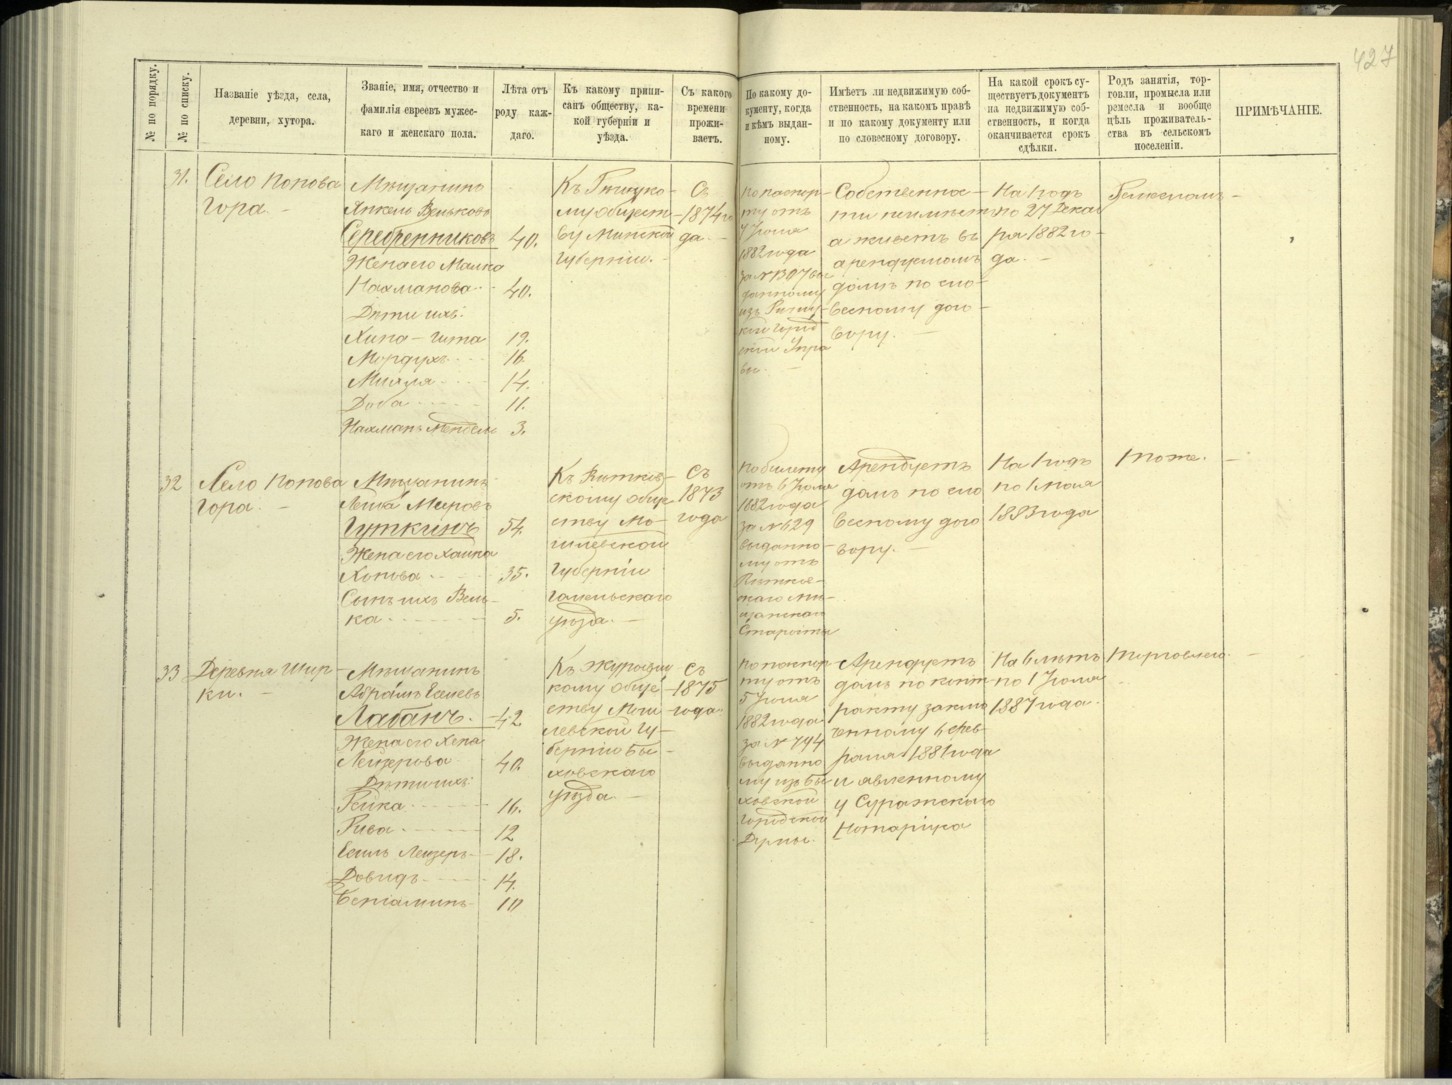 427
№ по порядку.
№ по списку.
Названіе уѣзда, села,
деревни, хутора.
Званіе, имя, отчество и
фамилія евреевъ мужес-
каго и женскаго пола.
Лѣта отъ
роду каж-
даго.
Къ какому припи-
санъ обществу, ка-
кой губерніи и
уѣзда.
Съ какого
времени
прожи-
ваетъ.
По какому до-
кументу, когда
и кѣмъ выдан-
ному.
Имѣетъ ли недвижимую соб-
ственность, на какомъ правѣ
и по какому документу или
по словесному договору.
На какой срокъ су-
ществуетъ документъ
на недвижимую соб-
ственность, и когда
оканчивается срокъ
сдѣлки.
Родъ занятія, тор-
говли, промысла или
ремесла и вообще
цѣль проживатель-
ства въ сельскомъ
поселеніи.
ПРИМѢЧАНІЕ.
31.
Село Попова
Гора. -
Мѣщанинъ
Янкель Веньковъ
Серебренниковъ 40.
Жена его Малка
Нахманова 40.
Дѣти ихъ:
Хипа-Гита 19.
Мордухъ 16.
14.
Доба 11.
Нахманъ Мендель 3.
му общест-
ву Минской
Губерніи. -
Съ
1874 го
да. -
По паспор-
ту отъ
7 Іюля
1882 года
за № 1307 вы
данному
изъ
вы. -
Собственнос-
ти не имѣетъ
а живетъ въ
арендуемомъ
домѣ по сло-
весному дого-
вору. -
На 1 годъ
по 27 Декаб
ря 1882 го-
да. -
32
Село Попова
Гора. -
Мѣщанинъ
Лейба Меировъ
Гуткинъ 54.
Жена его Хаина
35.
Сынъ ихъ Вень-
ка 5.
Къ Вѣтков-
скому обще
ству Мо-
гилевской
Губерніи
Гомельскаго
уѣзда. -
Съ
1873
года
По билету
отъ 6 Іюля
1882 года
за № 629
выданно-
му отъ
Вѣтков-
скаго Мѣ-
щанскаго
Старосты
Арендуетъ
домъ по сло
весному дого
вору. -
На 1 годъ
по 1 мая
1883 года
Тоже. -
33
Деревня Шир-
ки. -
Мѣщанинъ
Абрамъ Еселевъ
Лабанъ. 42
Жена его Хена
Лейзерова 40.
Дѣти ихъ:
Рейка 16.
Рива 12
Есиль Лейзеръ 18.
Довидъ 14.
Беньаминъ 10
кому обще-
ству Моги
левской Гу-
берніи Бы-
ховскаго
уѣзда -
Съ
1875
года
По паспор
ту отъ
5 Іюля
1882 года
за № 794
выданно
му изъ Бы
ховской
Городской
Думы.
Арендуетъ
домъ по конт
ракту заклю
ченному 6 Фев-
раля 1881 года
и явленному
у Суражскаго
Нотаріуса
На 6 лѣтъ
по 1 Іюля
1887 года.
Торговлею. -